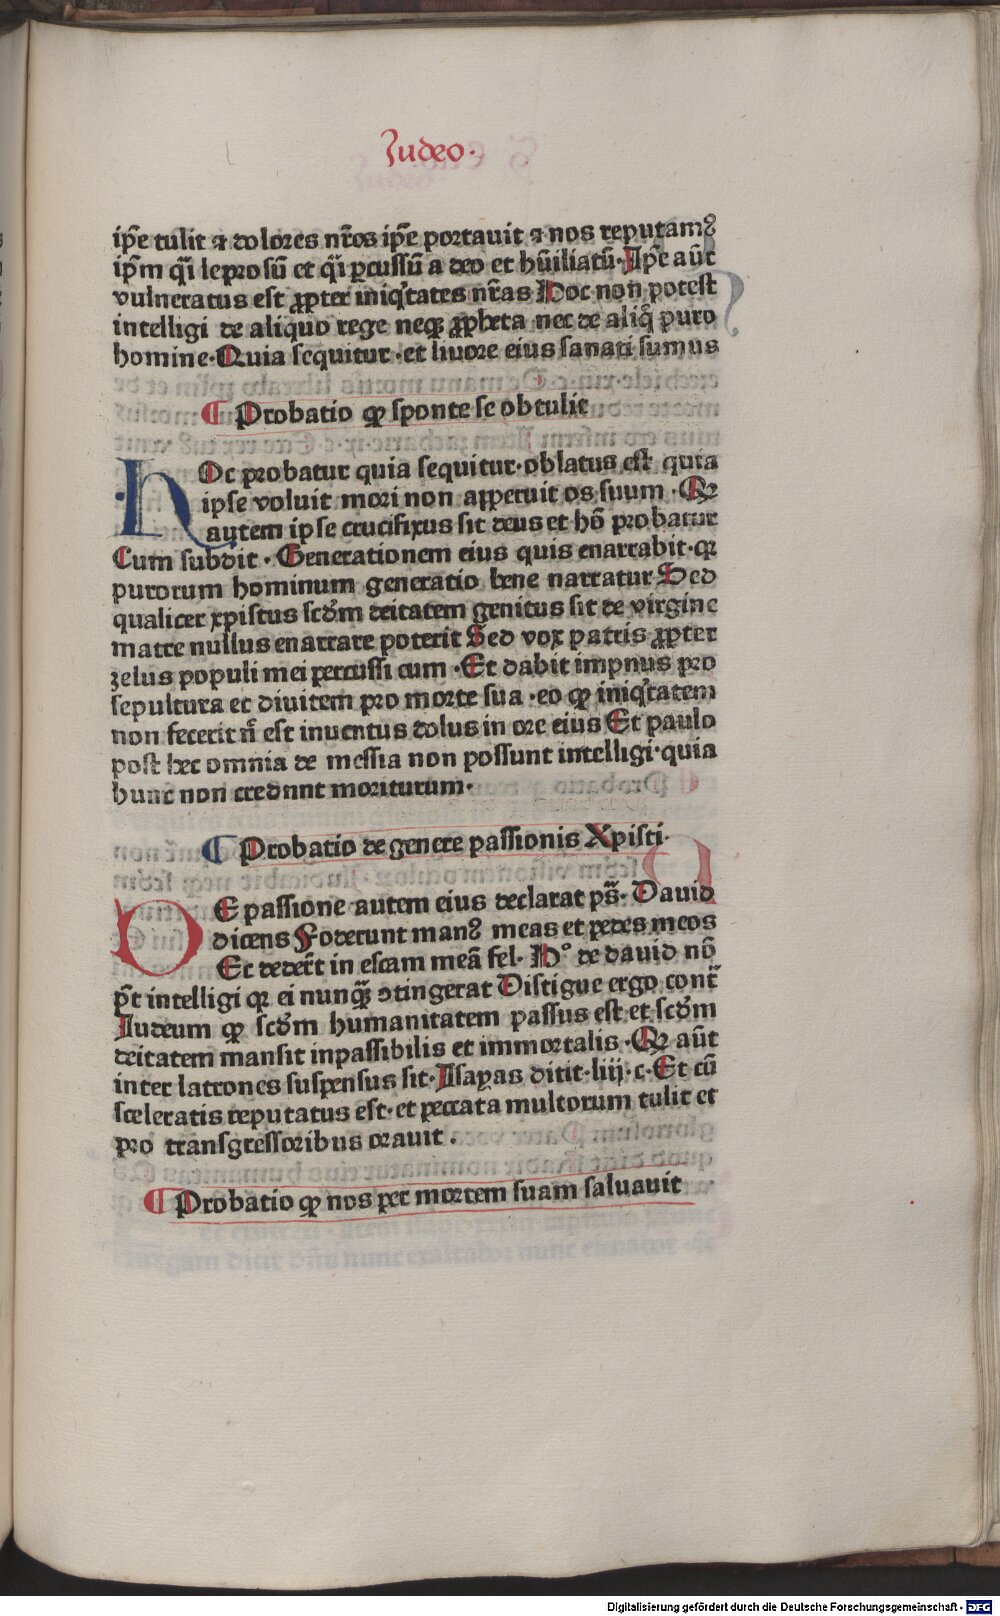 Judeo.
ip̄e tulit ⁊ dolores nr̄os ip̄e portauit ⁊ nos reputamꝰ
ip̄m qͣi leprosū et qͣi ꝑcussū a deo et hūiliatū. Ip̄e aūt
vulneratus est ꝓpter iniqͥtates nr̄as Hoc non potest
intelligi de aliquo rege neqꝫ ꝓpheta nec de aliqͦ puro
homine. Quia sequitur .et liuore eius sanati sumus
¶ Probatio ꝙ sponte se obtulit
HOc probatur quia sequitur. oblatus est quia
ipse voluit mori non apperuit os suum . Qꝛ
autem ipse crucifixus sit deus et hō probatur
Cum subdit . Generationem eius quis enarrabit. qꝛ
purorum hominum generatio bene narratur Sed
qualiter xpistus scd̄m deitatem genitus sit de virgine
matre nullus enarrare poterit Sed vox patris ꝓpter
zelus populi mei percussi eum . Et dabit impnus pro
sepultura et diuitem pro morte sua . eo ꝙ iniqͥtatem
non fecerit n̄ est inuentus dolus in ore eius Et paulo
post hec omnia de messia non possunt intelligi. quia
hunc non crednnt moriturum.
¶ Probatio de genere passionis Xpisti.
DE passione autem eius declarat ps̄. Dauid
dicens Foderunt manꝰ meas et pedes meos
Et dedert̄ in escam meā fel. Hº de dauid nō
pt̄ intelligi qꝛ ei nunqꝫ ↄtingerat Distigue ergo contͣ
Iudeum ꝙ scd̄m humanitatem passus est et scd̄m
deitatem mansit inpassibilis et immortalis . Qꝛ aūt
inter latrones suspensus sit. Isayas ditit. liij. c. Et cū
sceleratis reputatus est. et peccata multorum tulit et
pro transgressoribus orauit .
¶ Probatio ꝙ nos per mortem suam saluauit
Digitalisierung gefördert durch die Deutsche Forschungsgemeinschaft - DFG